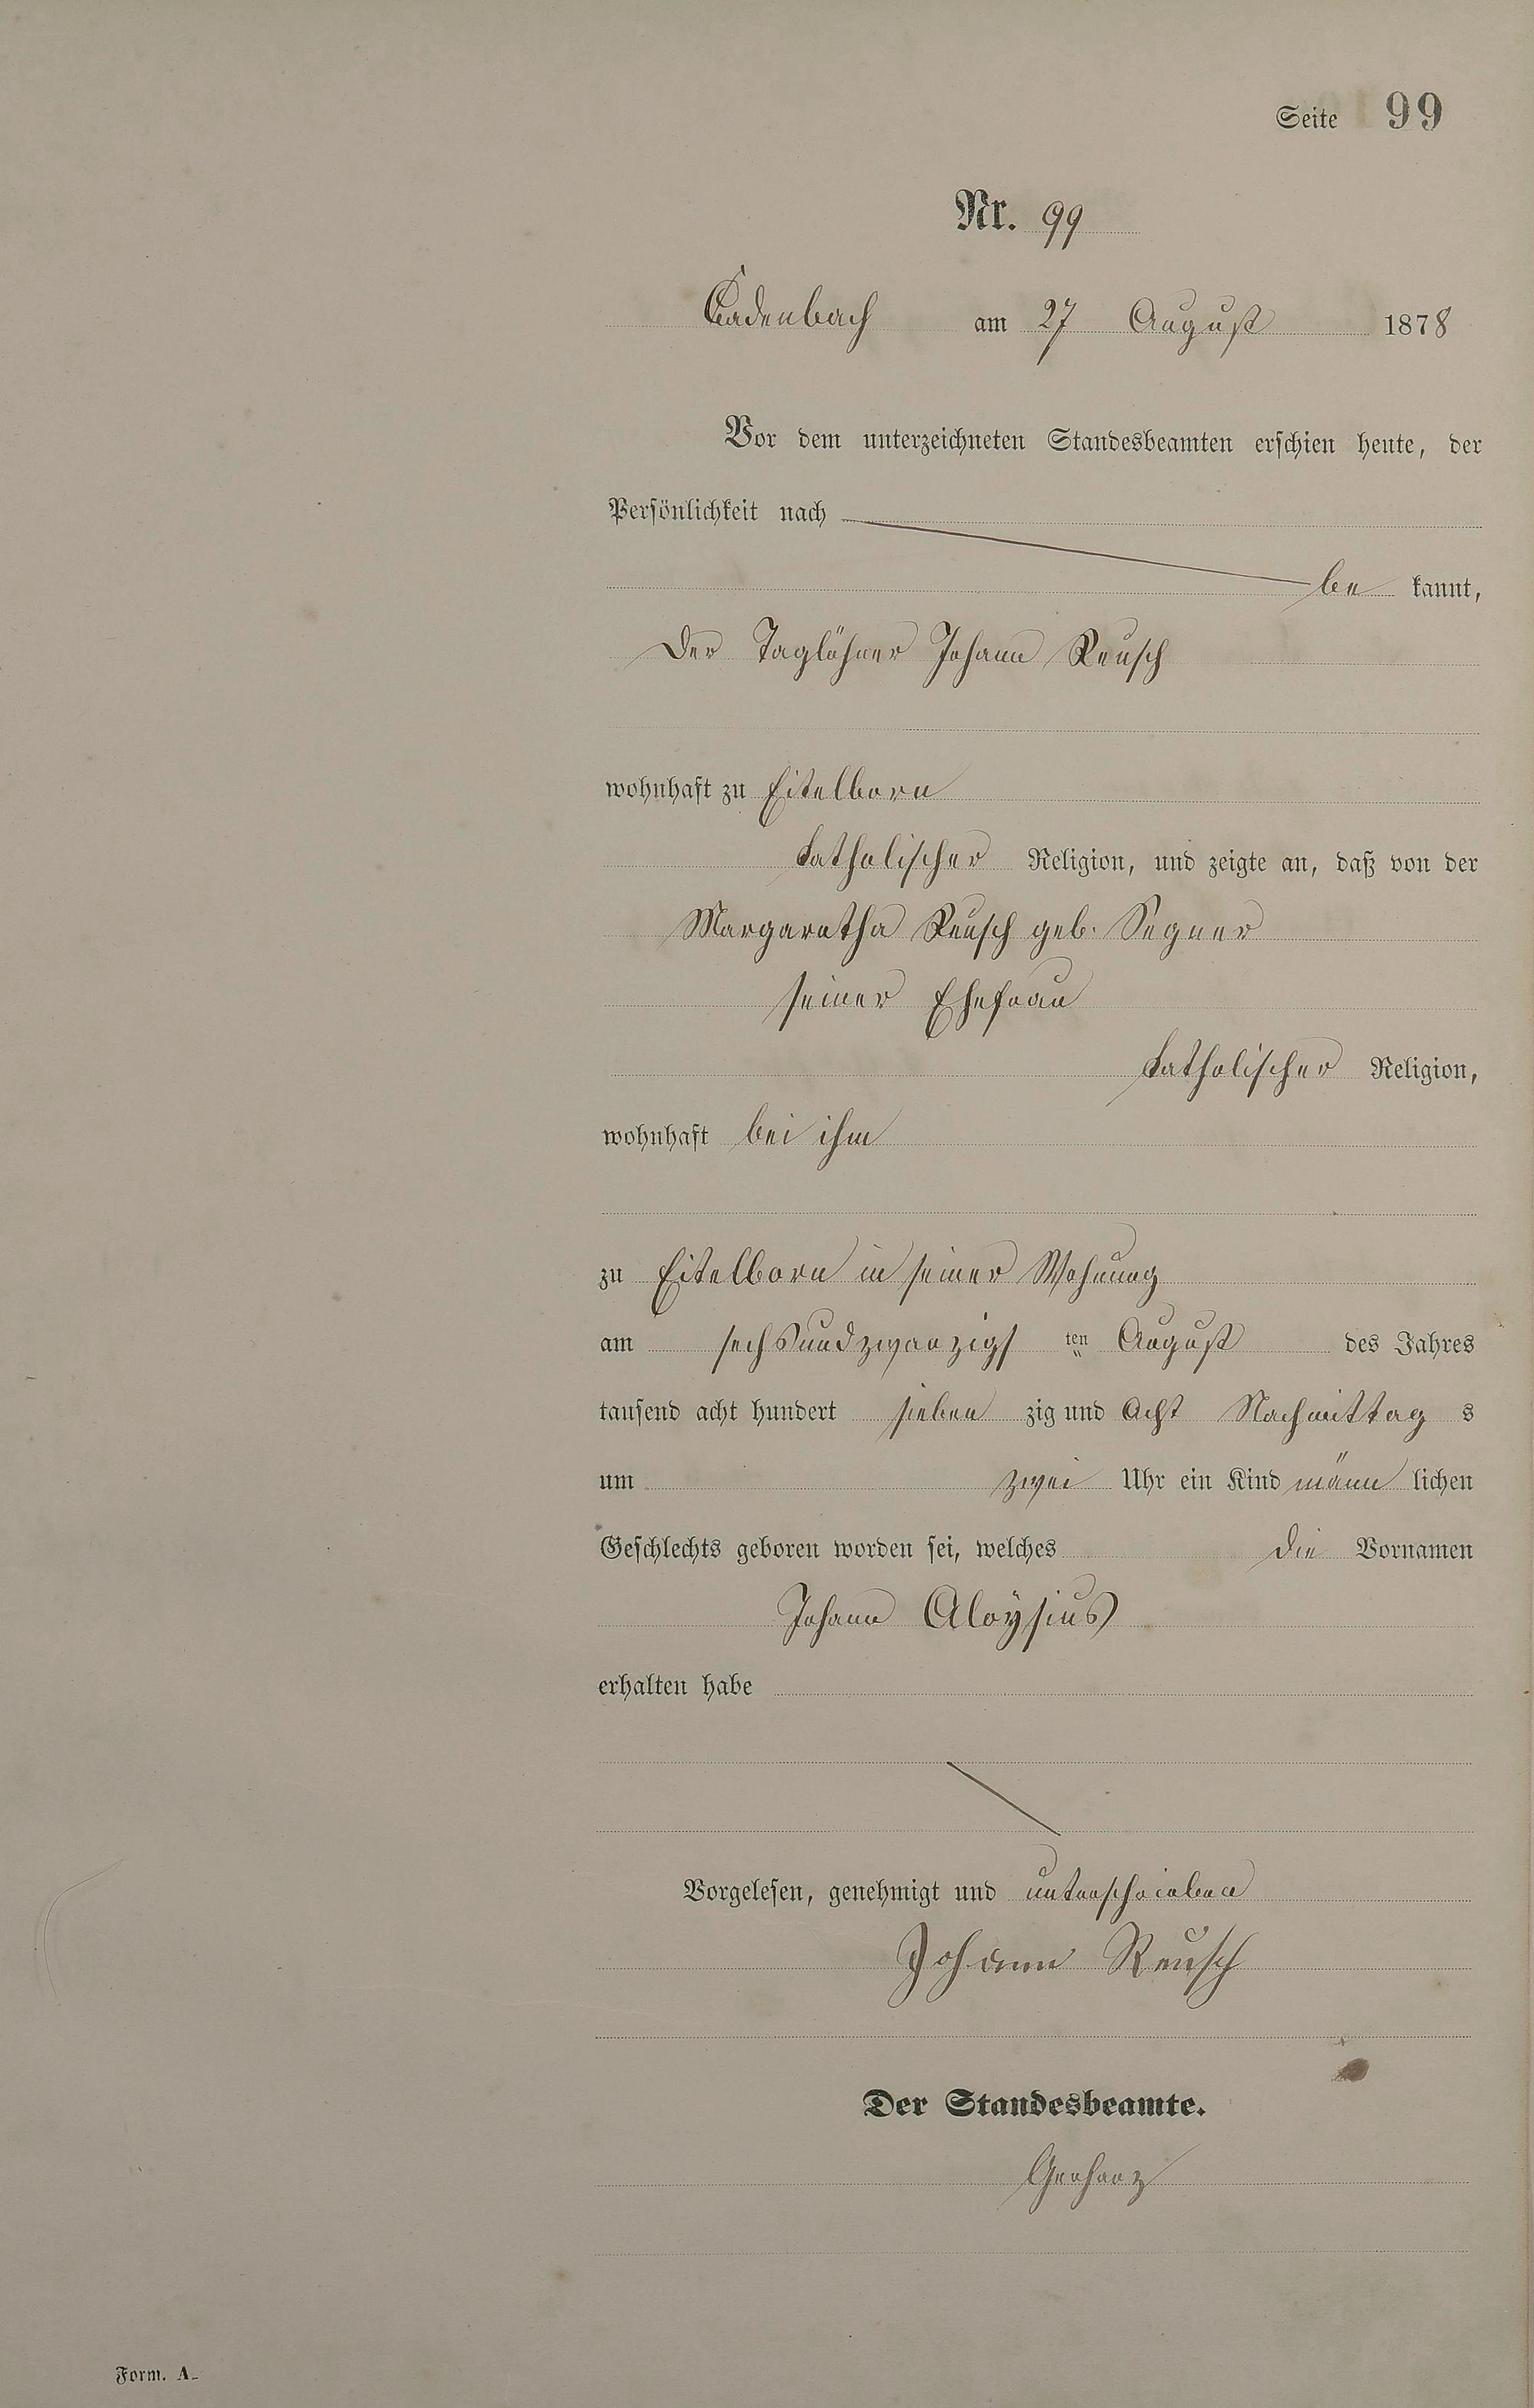 Seite 99
Nr. 99
Cadenbach am 27 August 1878
Vor dem unterzeichneten Standesbeamten erschien heute, der
Persönlichkeit nach
be kannt,
Der Taglöhner Johann Reusch
wohnhaft zu Eitelborn
katholischer Religion, und zeigte an, daß von der
Margaretha Reusch geb. Segner
seiner Ehefrau
katholischer Religion,
wohnhaft bei ihm
zu Eitelborn in seiner Wohnung
am sechsundzwanzigs ten August des Jahres
tausend acht hundert sieben zig und Acht Nachmittag s
um zwei Uhr ein Kind männ lichen
Geschlechts geboren worden sei, welches die Vornamen
Johann Aloÿsius
erhalten habe
Vorgelesen, genehmigt und unterschrieben
Johann Reusch
Der Standesbeamte.
Gerharz
Form. A.